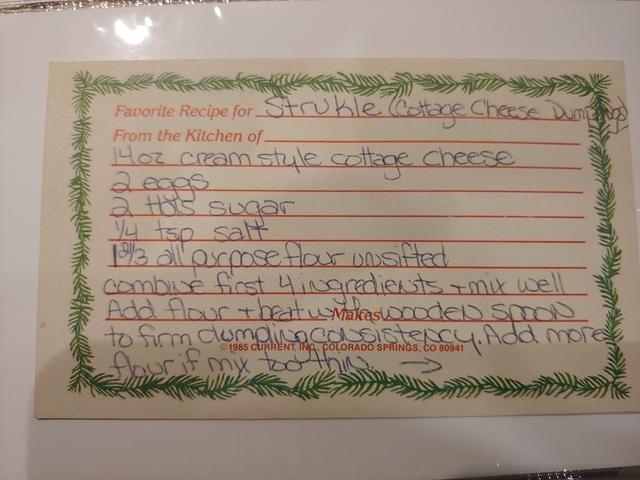 Favorite Recipe for Strukle (Cottage Cheese Dumplings)
From the Kitchen of
14oz cream style cottage cheese
2 eggs
2 tbls sugar
1/4 tsp salt
1 2/3 all purpose flour unsifted
combine first 4 ingredients + mix well
Add flour + beat with wooden spoon
Makes
to firm dumpling consistency. Add more
© 1985 CURRENT, INC., COLORADO SPRINGS, CO 80941
flour if mix too thin. →